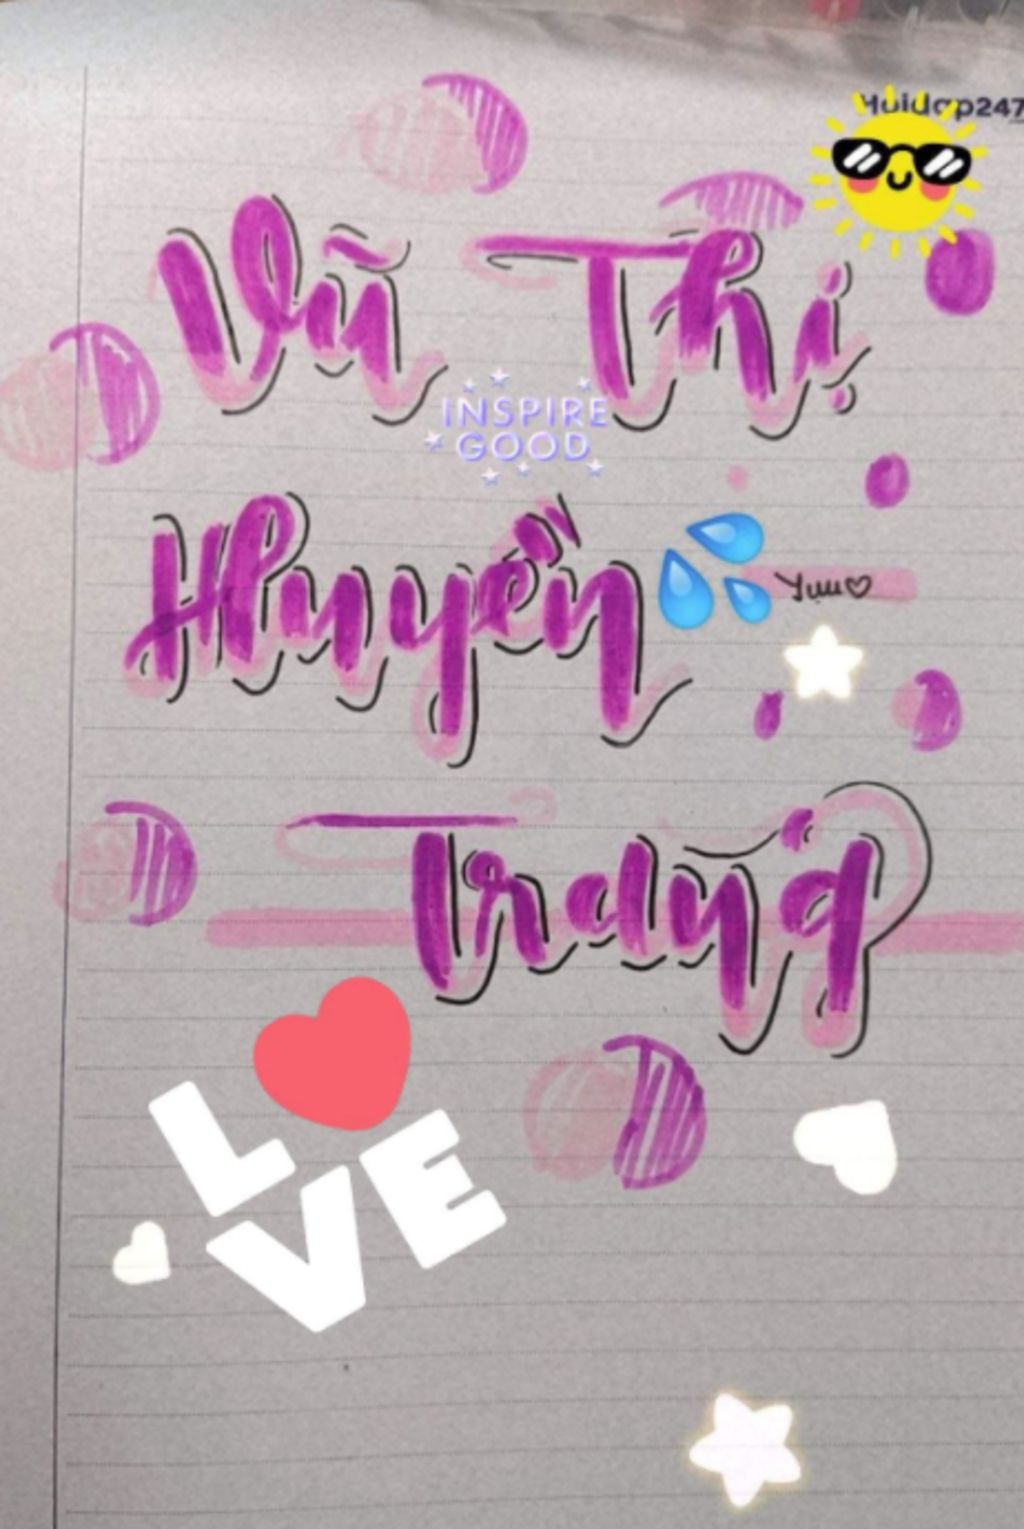 Hoidap247
Vũ Thị
INSPIRE
GOOD
Huyền
Yuu♡
Trang
LOVE